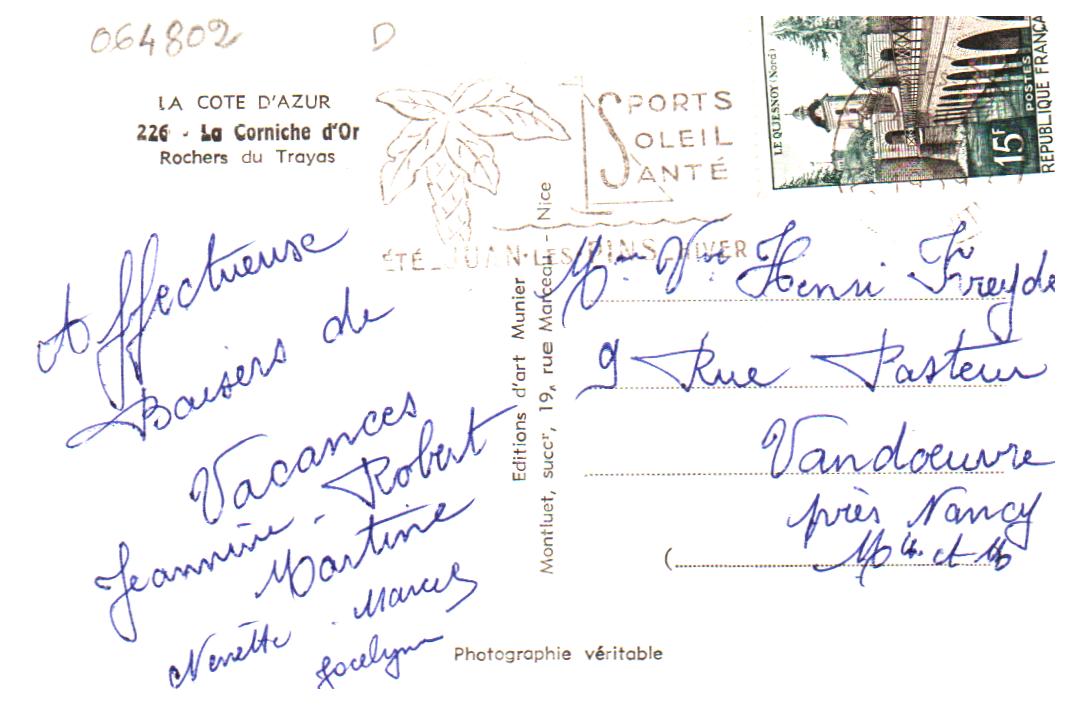 064802 D
LA COTE D'AZUR
226 - La Corniche d'Or
Rochers du Trayas
SPORTS
SOLEIL
SANTÉ
ÉTÉ - JUAN-LES-PINS - HIVER
LE QUESNOY (Nord)
15F
POSTES
REPUBLIQUE FRANÇA
Affectueuse
Baisers de
Vacances
Jeannine - Robert
Martine
Nenette - Marcel
Jocelyne
Editions d'art Munier
Montluet, succr, 19, rue Marceau - Nice
Mme Vve Henri Freyde
9 Rue Pasteur
Vandoeuvre
près Nancy
(
M the. et M
Photographie véritable